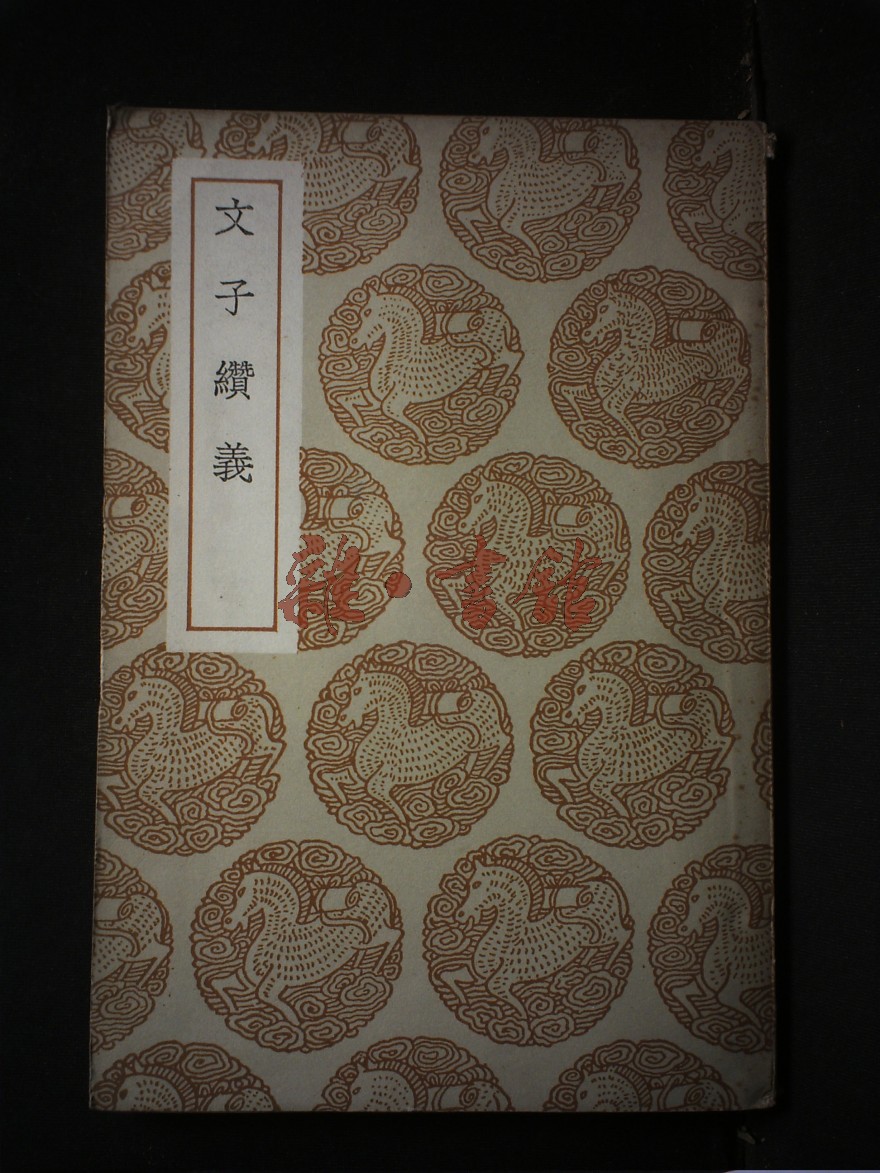 文子纘義
雜·書館